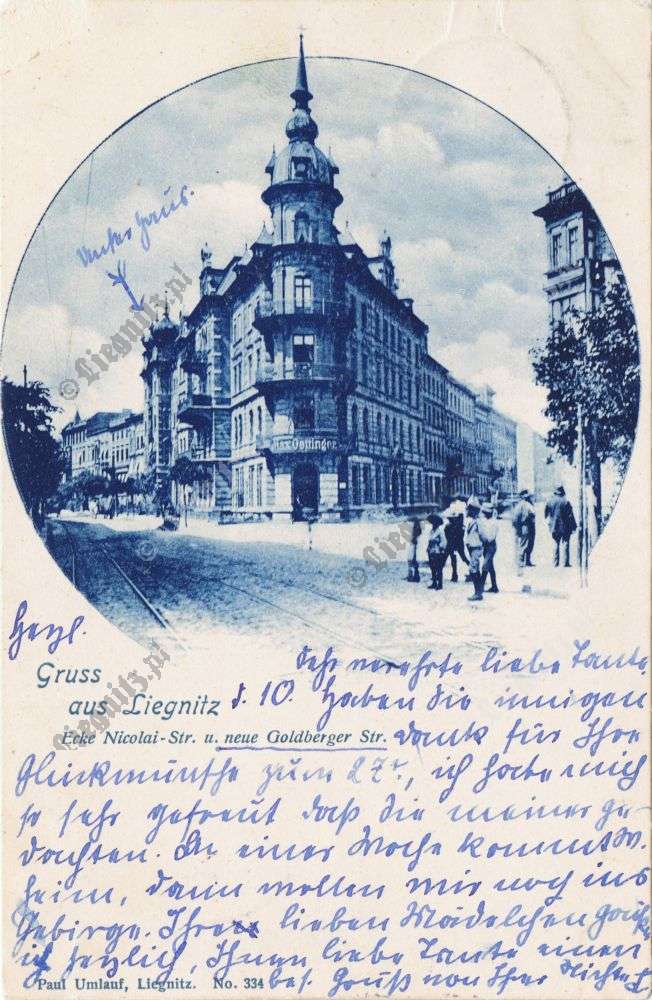 Unser Haus.
© Liegnitz.pl
Max Oettinger
© Liegnitz.pl
Herzl.
Gruss
aus Liegnitz
© Liegnitz.pl
d. 10.
Ecke Nicolai-Str. u. neue Goldberger Str.
Sehr verehrte liebe Tante.
Haben Sie innigen
Dank für Ihre
Glückwünsche zum 27t., ich habe mich
so sehr gefreut daß Sie meiner ge-
dachten. In einer Woche kommt W.
heim, dann wollen wir noch ins
Gebirge. Ihren lieben Mädelchen
ich herzlich, Ihnen liebe Tante einen
bes. Gruß von Ihrer Nichte
Paul Umlauf, Liegnitz. No. 334